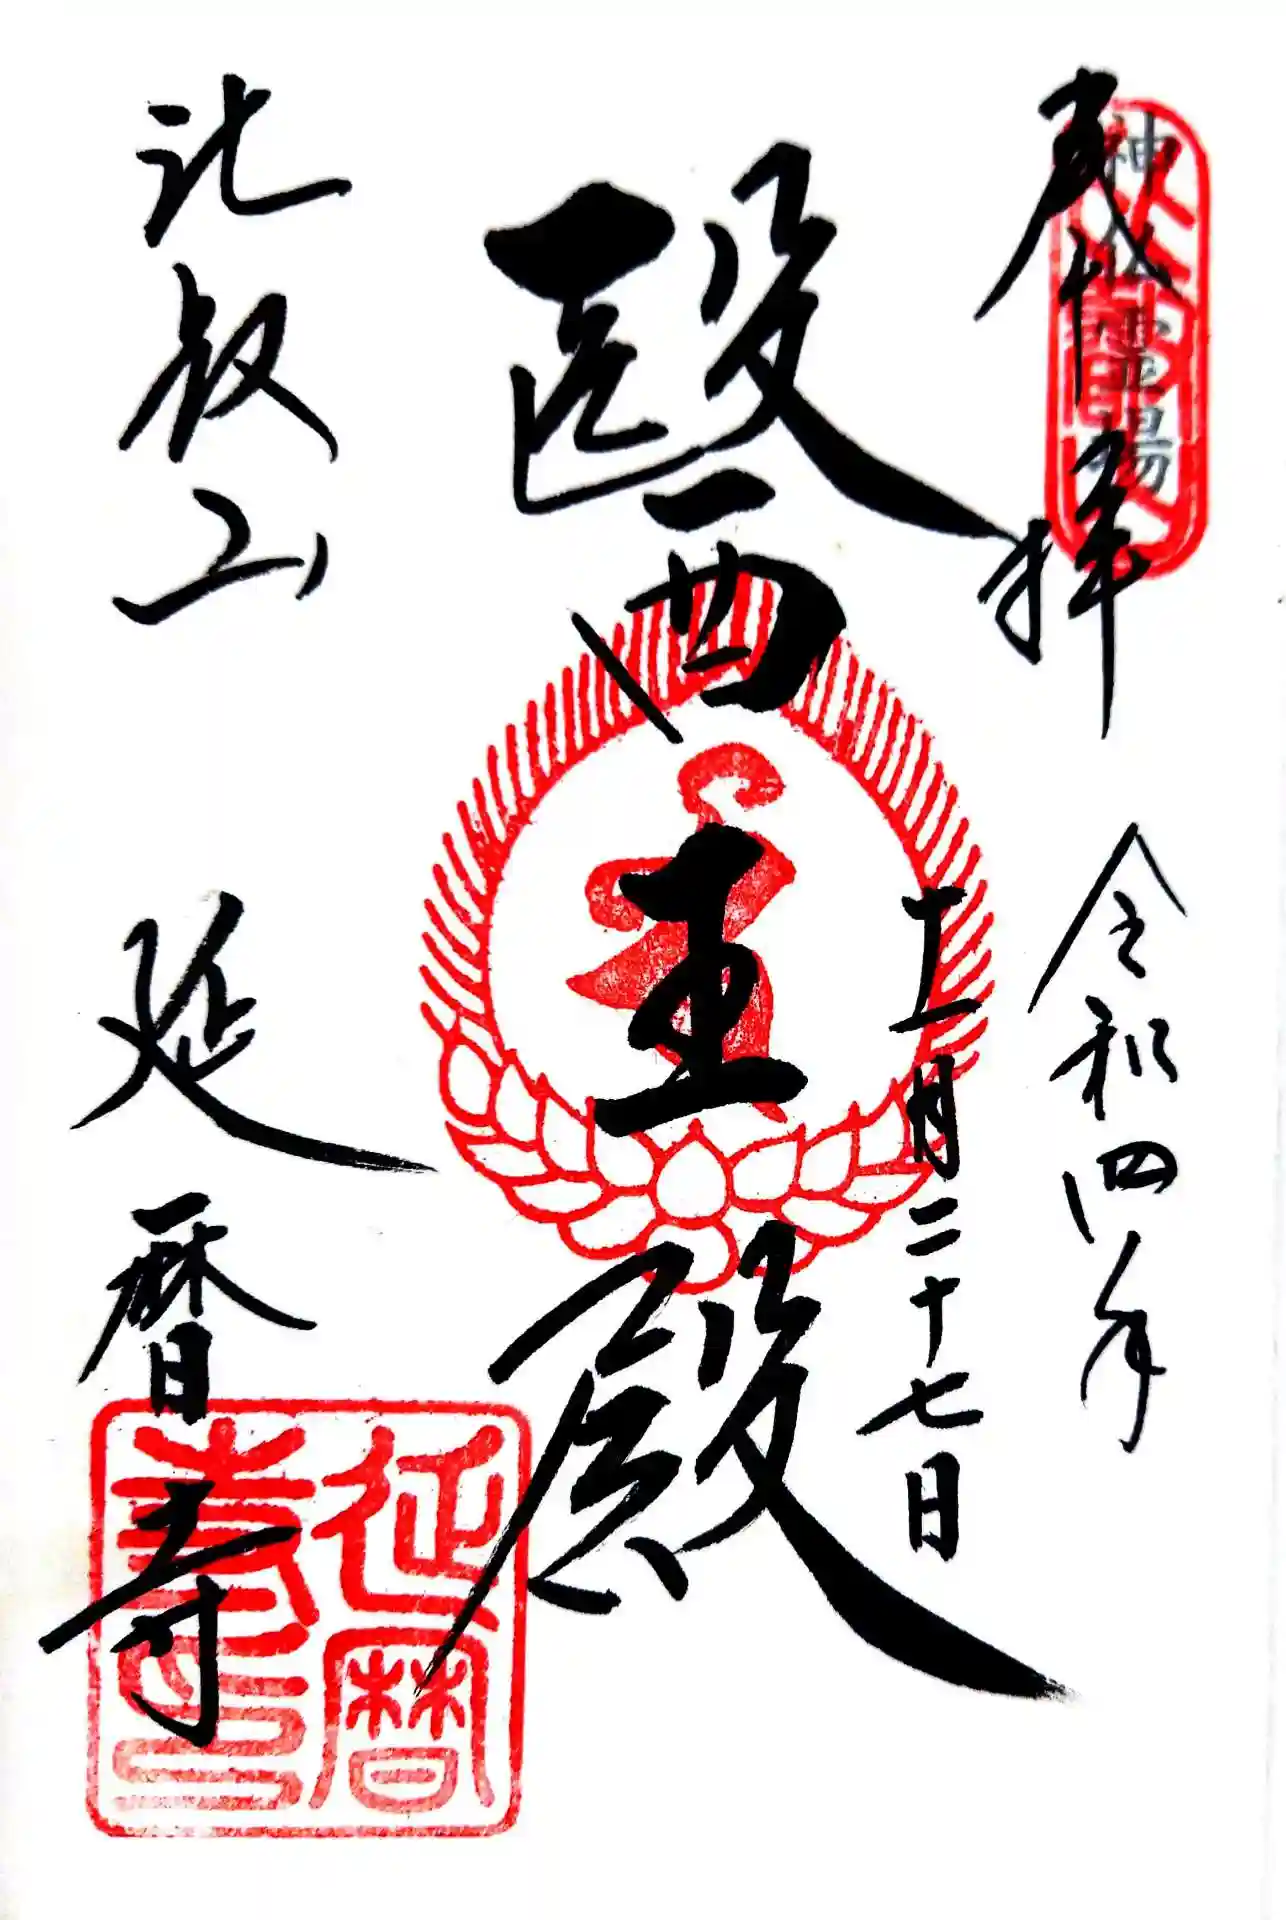 奉拝
神仏霊場
令和四年
十一月二十七日
醫王殿
比叡山
延暦寺
延暦
寺印